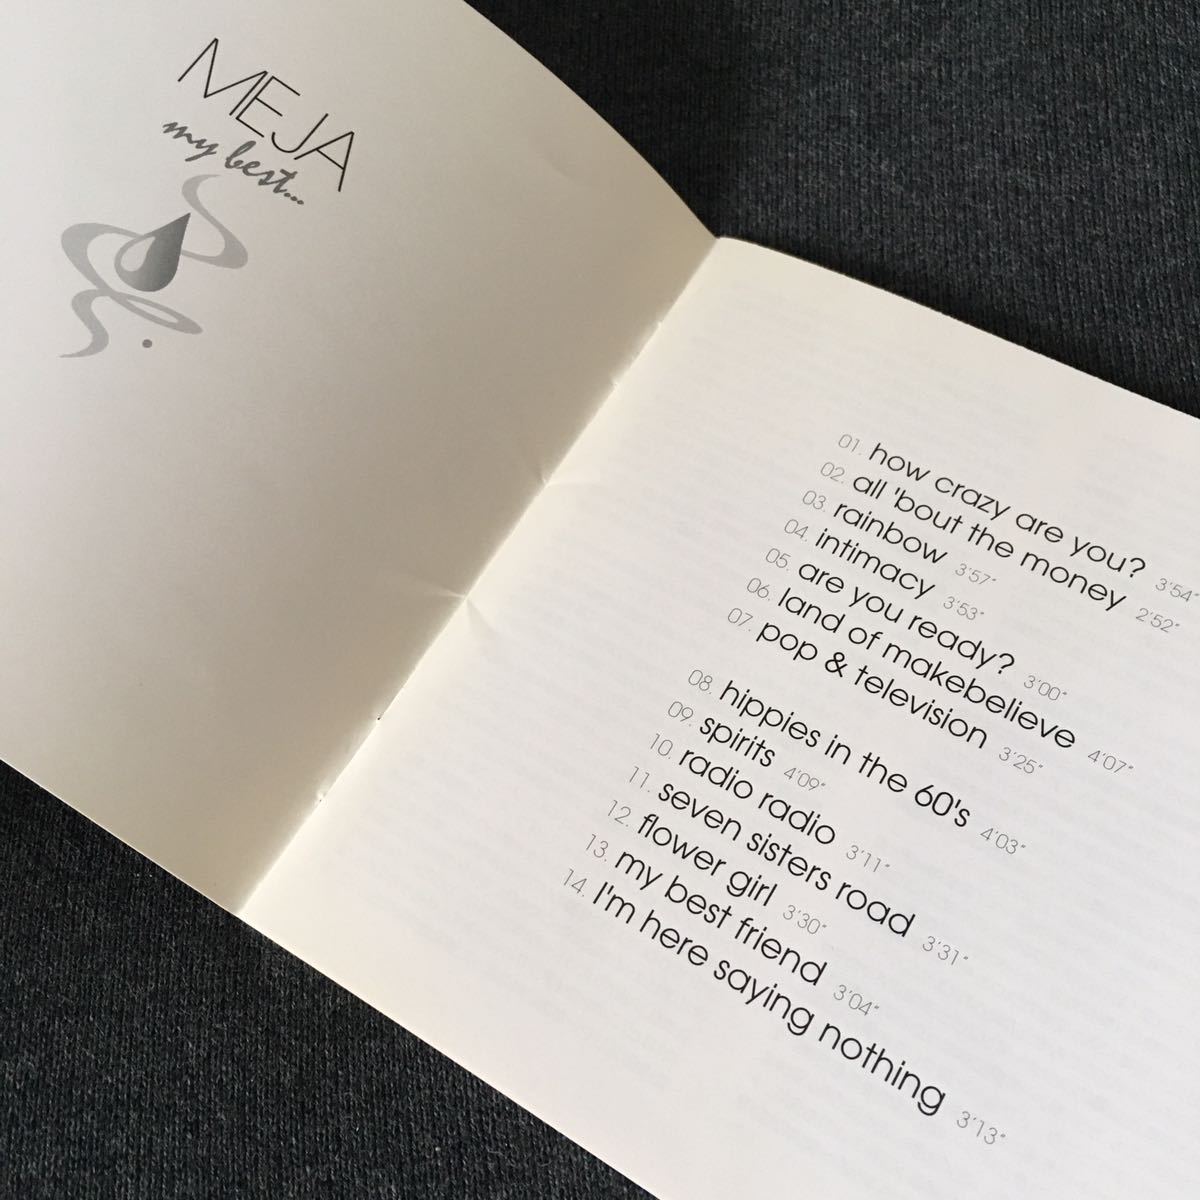 MEJA
my best...
01. how crazy are you? 3'54"
02. all 'bout the money 2'52"
03. rainbow 3'57"
04. intimacy 3'53"
05. are you ready? 3'00"
06. land of makebelieve 4'07"
07. pop & television 3'25"
08. hippies in the 60's 4'03"
09. spirits 4'09"
10. radio radio 3'11"
11. seven sisters road 3'31"
12. flower girl 3'30"
13. my best friend 3'04"
14. I'm here saying nothing 3'13"